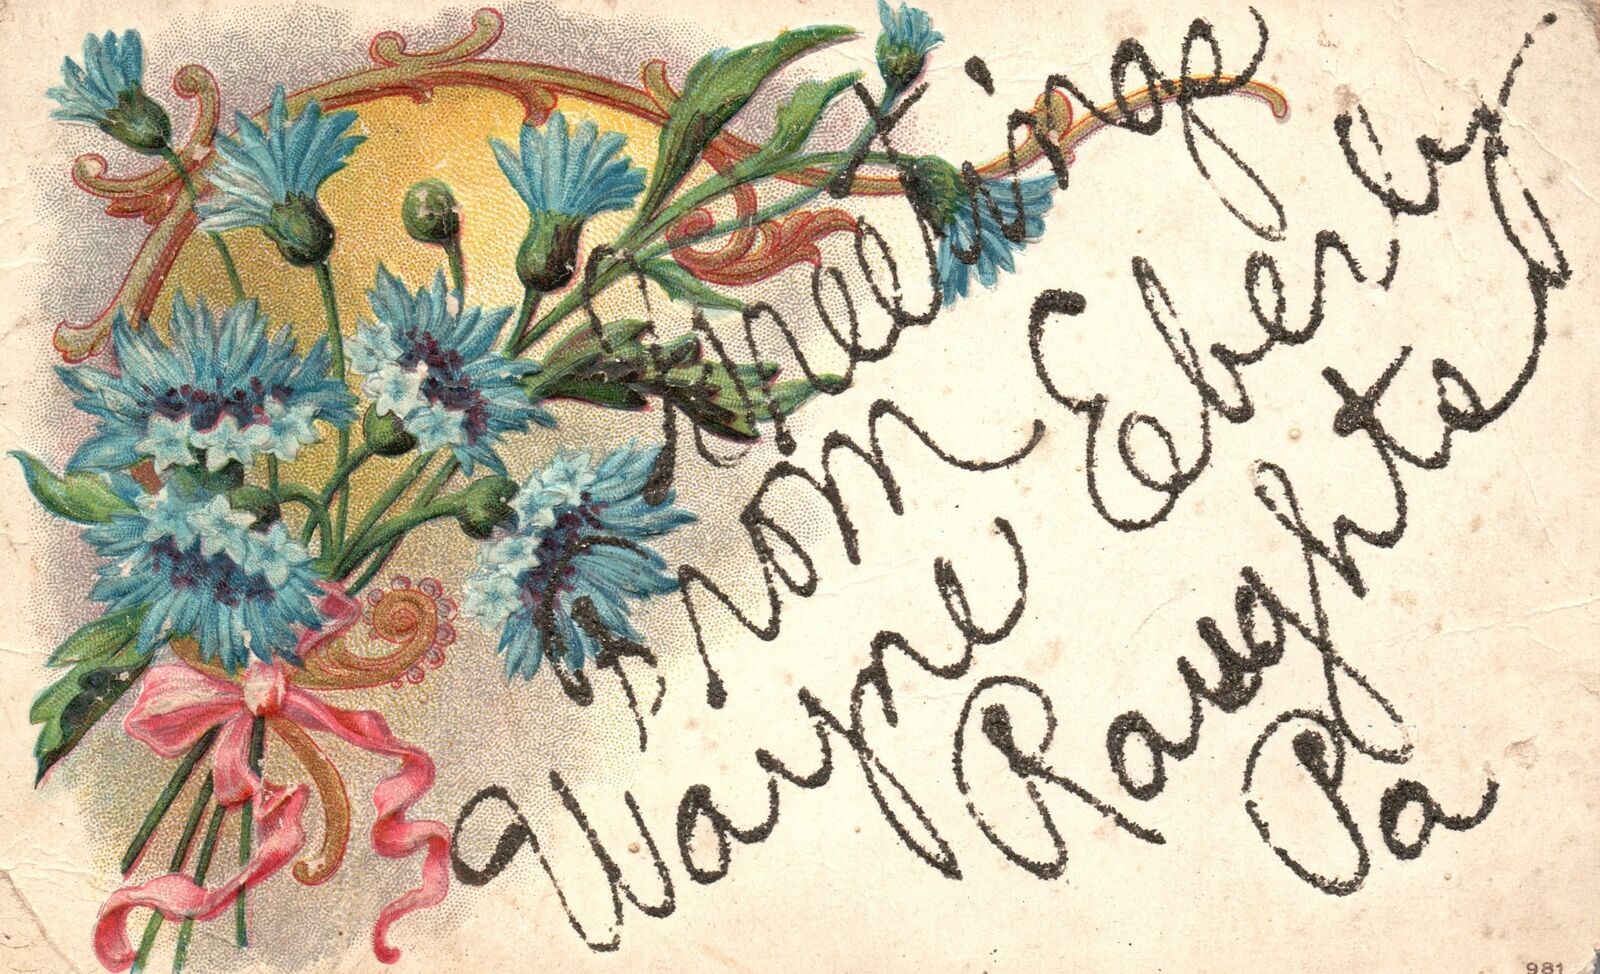 Greetings
From
Wayne Eberly
Raughts
Pa
981